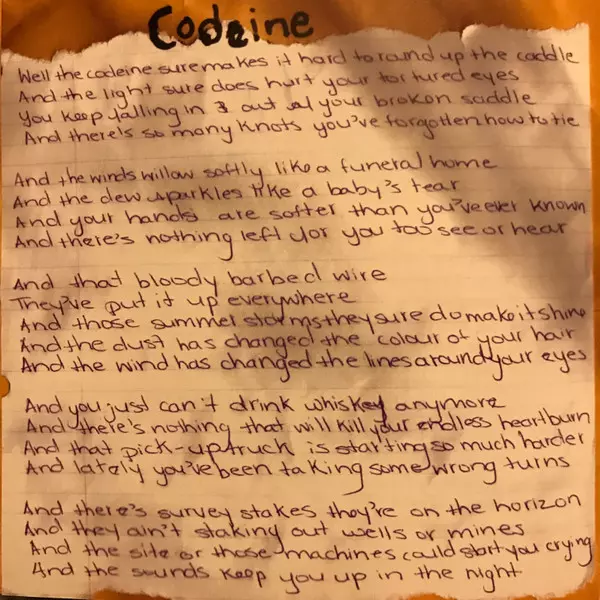 Codeine
Well the codeine sure makes it hard to round up the caddle
And the light sure does hurt your tortured eyes
You keep falling in & out of your broken saddle
And there's so many knots you've forgotten how to tie
And the winds willow softly like a funeral home
And the dew sparkles like a baby's tear
And your hands are softer than you've ever known
And there's nothing left for you too see or hear
And that bloody barbed wire
They've put it up everywhere
And those summer storms they sure do make it shine
And the dust has changed the colour of your hair
And the wind has changed the lines around your eyes
And you just can't drink whiskey anymore
And there's nothing that will kill your endless heartburn
And that pick-up truck is starting so much harder
And lately you've been taking some wrong turns
And there's survey stakes they're on the horizon
And they ain't staking out wells or mines
And the site or those machines could start you crying
And the sounds keep you up in the night